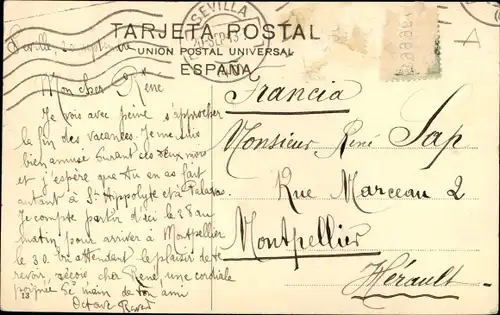 TARJETA POSTAL
UNION POSTAL UNIVERSAL
ESPAÑA
SEVILLA
Séville, 20
Mon cher René
Je vois avec peine s'approcher
la fin des vacances. Je me suis
bien amusé durant ces deux mois
et j'espère que tu en as fait
autant à St Hippolyte et à Palavas.
Je compte partir d'ici le 28 au
matin, pour arriver à Montpellier
le 30. En attendant le plaisir de te
revoir, reçois cher René, une cordiale
poignée de main de ton ami
Octave
13
Francia
Monsieur René Sap
Rue Marceau 2
Montpellier
Hérault